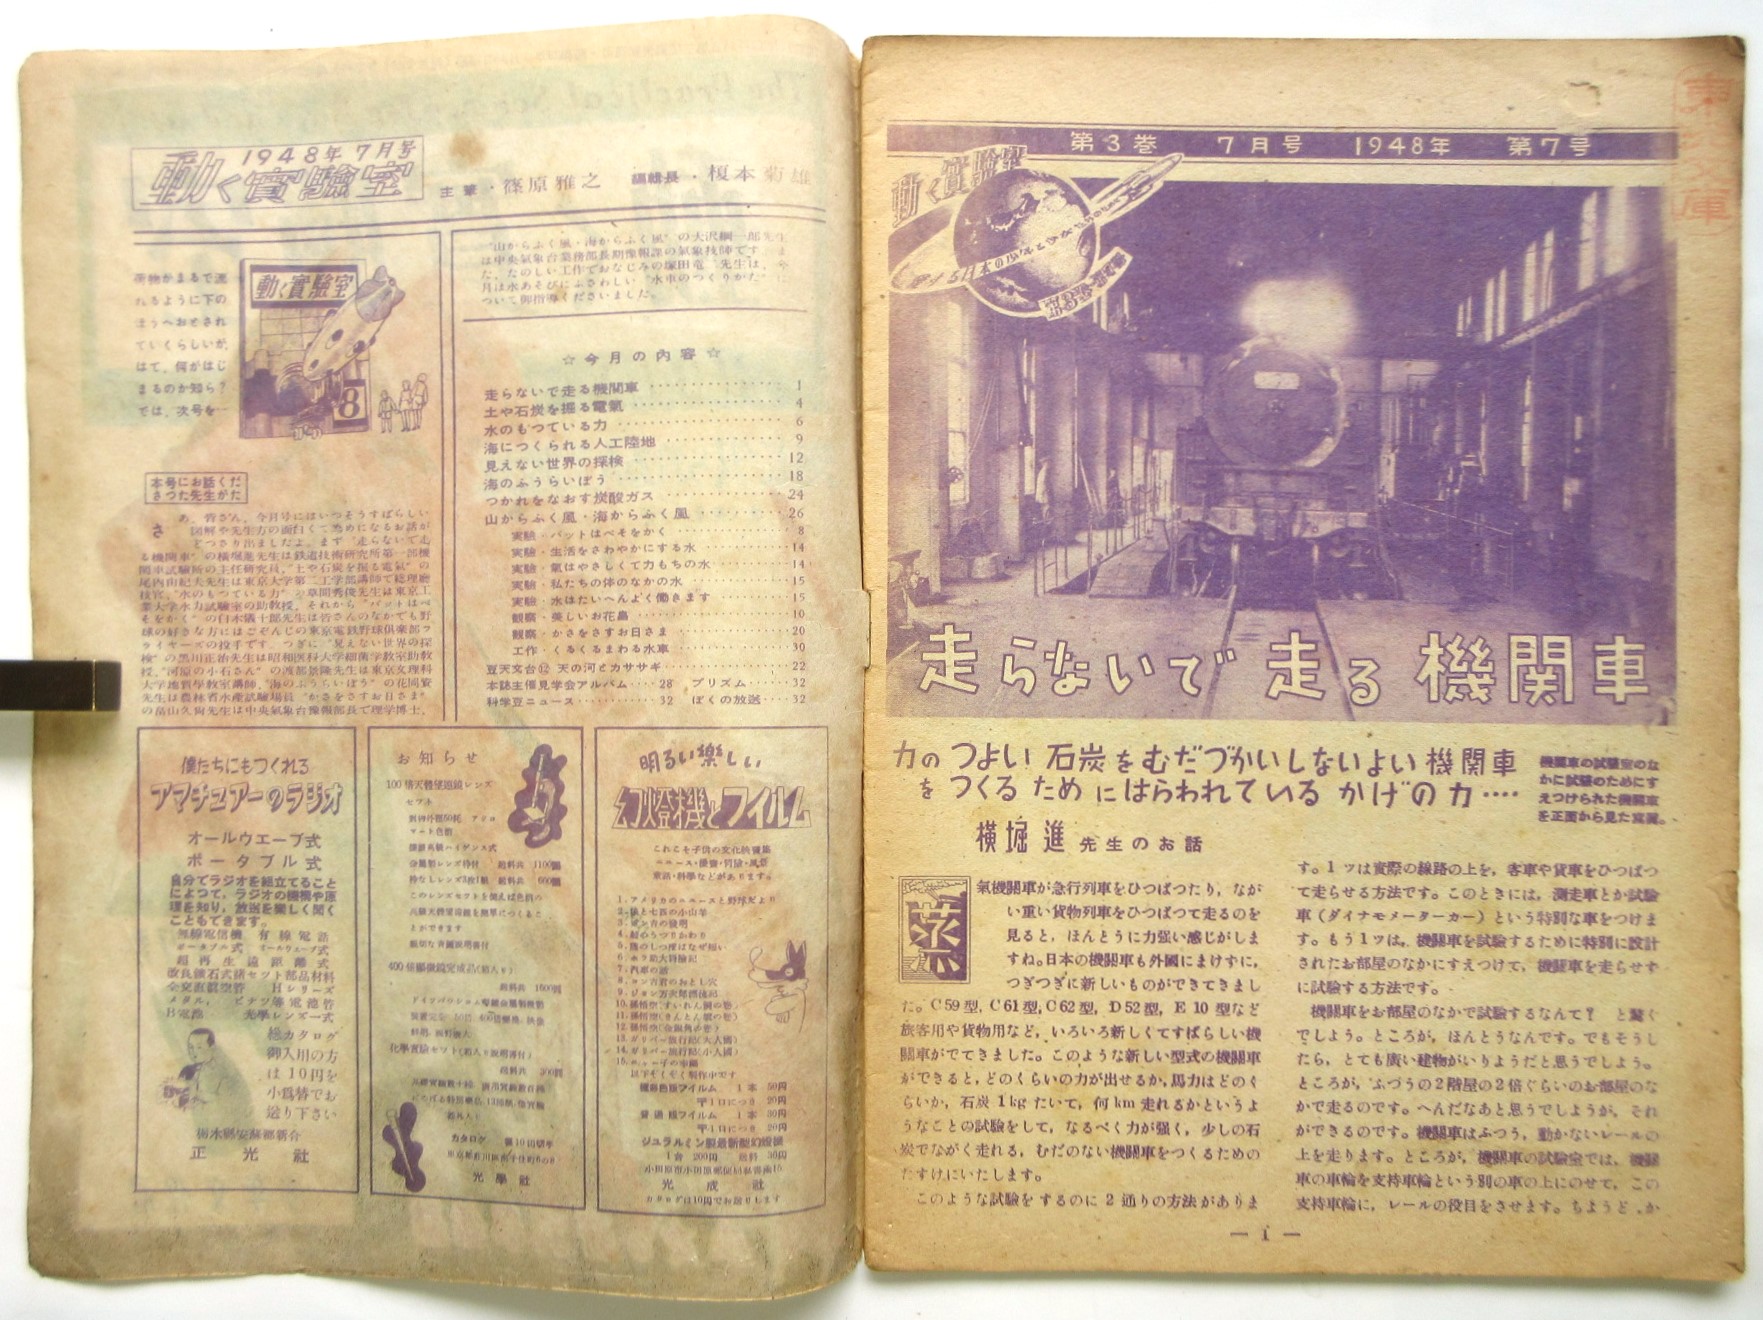 1948年7月号
動く實驗室
主筆・篠原雅之　編輯長・榎本菊雄
荷物がまるで流
れるように下の
ほうへおとされ
ていくらしいが、
はて、何がはじ
まるのか知ら?
では、次号を…
動く實驗室
8
本号にお話くだ
さつた先生がた
さあ、皆さん、今月号にはいつそうすばらしい
図解や先生方の面白くて為めになるお話が
どつさり出ましたよ。まず“走らないで走
る機関車”の横堀進先生は鉄道技術研究所第一部機
関車試験所の主任研究員、“土や石炭を掘る電氣”の
尾内由紀夫先生は東京大学第二工学部講師で総理廳
技官、“水のもつている力”の草間秀俊先生は東京工
業大学水力試驗室の助教授、それから“バットはべ
そをかく”の白木儀十郎先生は皆さんのなかでも野
球の好きな方にはごぞんじの東京電鉄野球倶楽部フ
ライヤーズの投手です。つぎに“見えない世界の探
検”の黒川正治先生は昭和医科大学細菌学教室助教
授、“河原の小石さん”の渡部景隆先生は東京文理科
大学地質学教室講師、“海のふうらいぼう”の花岡資
先生は農林省水産試験場員、“かさをさすお日さま”
の畠山久尚先生は中央氣象台豫報部長で理学博士、
“山からふく風・海からふく風”の大沢綱一郎先生
は中央氣象台業務部長期豫報課の氣象技師です。ま
た、たのしい工作でおなじみの塚田竜一先生は、今
月は水あそびにふさわしい“水車のつくりかた”に
ついて御指導くださいました。
☆今月の内容☆
走らないで走る機関車 ・・・・・・ 1
土や石炭を掘る電氣 ・・・・・・ 4
水のもつている力 ・・・・・・ 6
海につくられる人工陸地 ・・・・・・ 9
見えない世界の探検 ・・・・・・ 12
海のふうらいぼう ・・・・・・ 18
つかれをなおす炭酸ガス ・・・・・・ 24
山からふく風・海からふく風 ・・・・・・ 26
実験・バットはべそをかく ・・・・・・ 8
実験・生活をさわやかにする水 ・・・・・・ 14
実験・氣はやさしくて力もちの水 ・・・・・・ 14
実験・私たちの体のなかの水 ・・・・・・ 15
実験・水はたいへんよく働きます ・・・・・・ 15
観察・美しいお花畠 ・・・・・・ 10
観察・かさをさすお日さま ・・・・・・ 20
工作・くるくるまわる水車 ・・・・・・ 30
豆天文台⑫ 天の河とカササギ ・・・・・・ 22
本誌主催見学会アルバム・・・・28　プリズム・・・・32
科学豆ニュース・・・・・・32　ぼくの放送・・・・32
僕たちにもつくれる
アマチュアーのラジオ
オールウエーブ式
ポータブル式
自分でラジオを組立てること
によつて、ラジオの機構や原
理を知り、放送を楽しく聞く
こともできます。
無線電信機　有線電話
ポータブル式　オールウェーブ式
超再生遠距離式
改良鑛石式諸セット部品材料
全交直眞空管　Hシリーズ
メタル、ピナツ等電池管
B電池　光學レンズ一式
総カタログ
御入用の方
は10円を
小爲替でお
送り下さい
栃木縣安蘇郡新合
正光社
お知らせ
100倍天體望遠鏡レンズ
セツト
このレンズセツトを使えば色消の
天體望遠鏡を簡単につくるこ
とができます
親切な書圖説明書付
400倍顯微鏡完成品(箱入り)
化學實驗セツト(箱入り説明書付)
送料共　300圓
カタログ　要10円切手
光學社
明るい楽しい
幻燈機とフイルム
これこそ子供の文化映畫集
ニュース・漫画・冒險・風景
童話・科學などがあります。
1. アメリカのニュースと野球だより
2. 狼と七匹の小山羊
7. 汽車の話
10. 孫悟空(すいれん洞の巻)
11. 孫悟空(きんとん雲の巻)
12. 孫悟空(金銀角の巻)
13. ガリバー旅行記(大人國)
14. ガリバー旅行記(小人國)
以下ぞくぞく製作中です
極彩色版フイルム　1本　50円
〒1口につき　20円
普通版フイルム　1本　30円
〒1口につき　20円
ジュラルミン製最新型幻燈機
1台　200円　送料　30円
光成社
カタログは10円でお送りします
第3巻　7月号　1948年　第7号
動く實驗室
走らないで走る機関車
力のつよい石炭をむだづかいしないよい機関車
をつくるためにはらわれているかげの力‥‥
機関車の試驗室のな
かに試驗のためにす
えつけられた機関車
を正面から見た寫眞。
横堀進先生のお話
蒸氣機關車が急行列車をひつぱつたり，なが
い重い貨物列車をひつぱつて走るのを
見ると，ほんとうに力強い感じがしま
すね。日本の機關車も外國にまけずに，
つぎつぎに新しいものができてきまし
た。C59型，C61型，C62型，D52型，E10型など
旅客用や貨物用など，いろいろ新しくてすばらしい機
關車がでてきました。このような新しい型式の機關車
ができると，どのくらいの力が出せるか，馬力はどのく
らいか，石炭1kgたいて，何km走れるかというよ
うなことの試驗をして，なるべく力が強く，少しの石
炭でながく走れる，むだのない機關車をつくるための
たすけにいたします。
このような試驗をするのに2通りの方法がありま
す。1ツは實際の線路の上を，客車や貨車をひつぱつ
て走らせる方法です。このときには，測走車とか試驗
車（ダイナモメーターカー）という特別な車をつけま
す。もう1ツは，機關車を試驗するために特別に設計
されたお部屋のなかにすえつけて，機關車を走らせず
に試驗する方法です。
機關車をお部屋のなかで試驗するなんて？　と驚く
でしよう。ところが，ほんとうなんです。でもそうし
たら，とても廣い建物がいりようだと思うでしよう。
ところが，ふづうの2階屋の2倍ぐらいのお部屋のな
かで走るのです。へんだなあと思うでしようが，それ
ができるのです。機關車はふつう，動かないレールの
上を走ります。ところが，機關車の試驗室では，機關
車の車輪を支持車輪という別の車の上にのせて，この
支持車輪に，レールの役目をさせます。ちようど，か
— 1 —